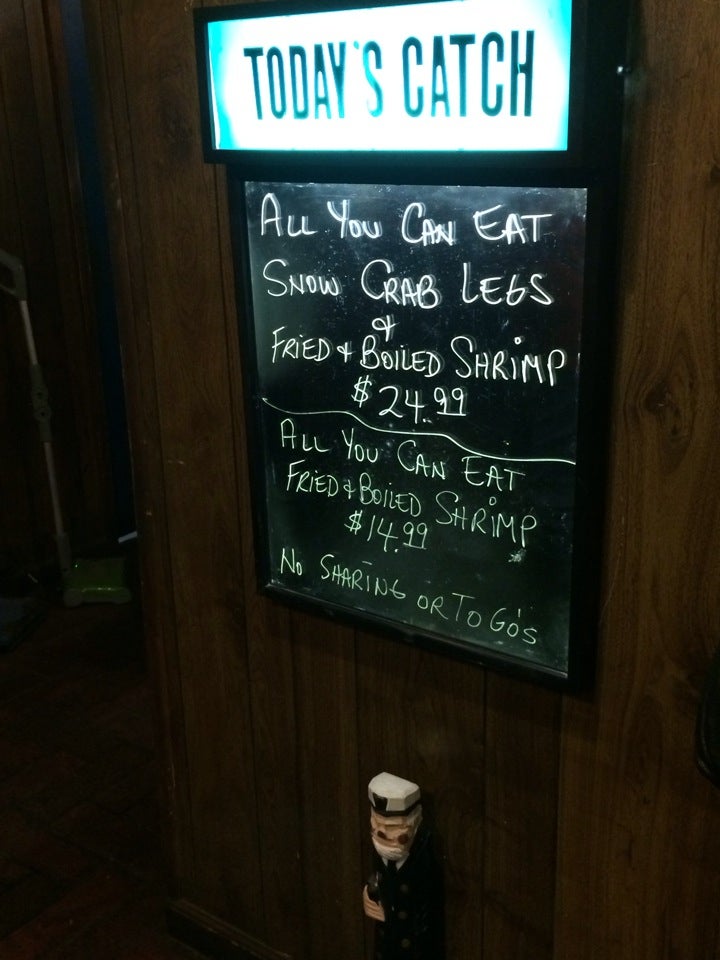 TODAY'S CATCH
ALL YOU CAN EAT
SNOW CRAB LEGS
&
FRIED & BOILED SHRIMP
$24.99
ALL YOU CAN EAT
FRIED & BOILED SHRIMP
$14.99
NO SHARING OR TO GO'S